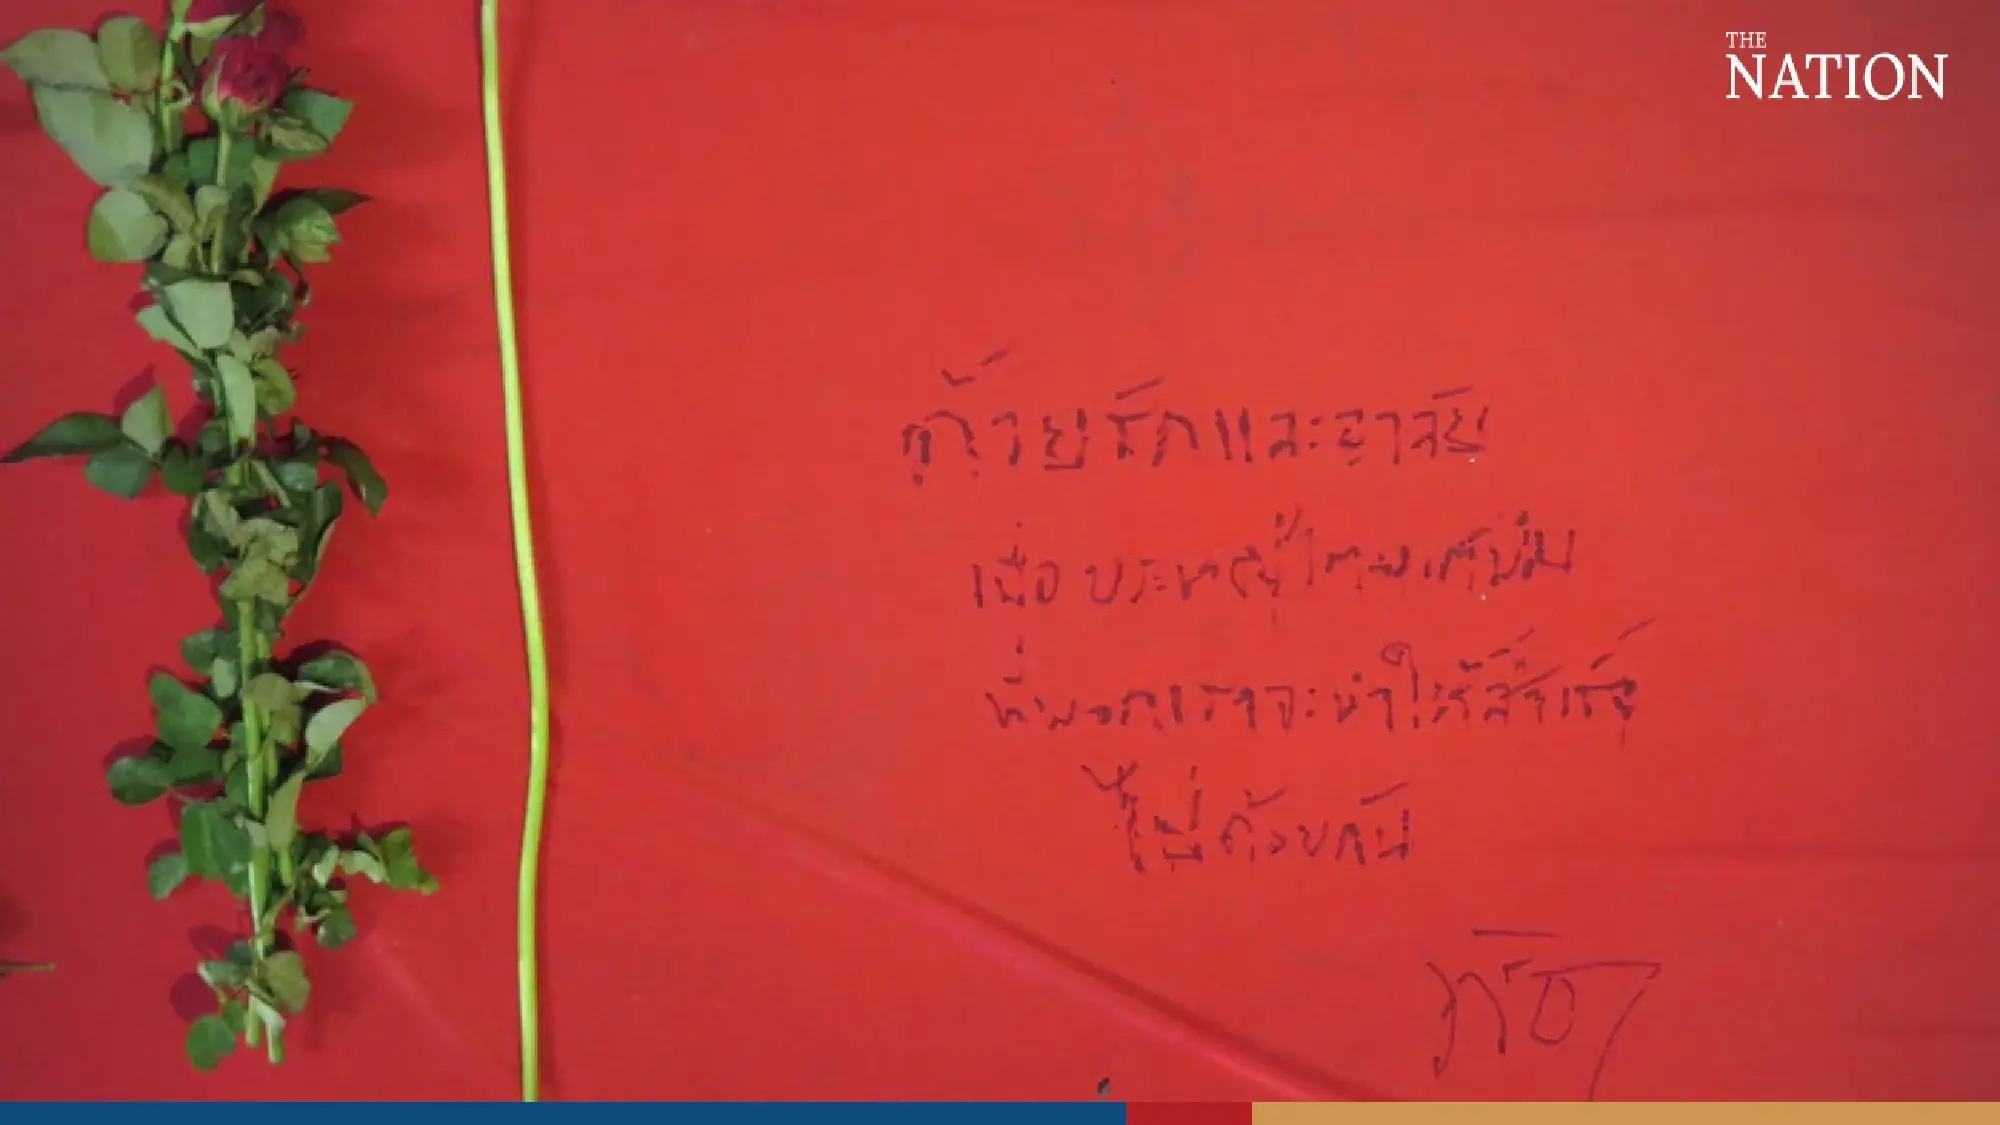 THE
NATION
ด้วยรักและอาลัย
เมื่อประชาธิปไตยเต็มใบ
ที่พวกเราจะทำให้สำเร็จ
ด้วยกัน